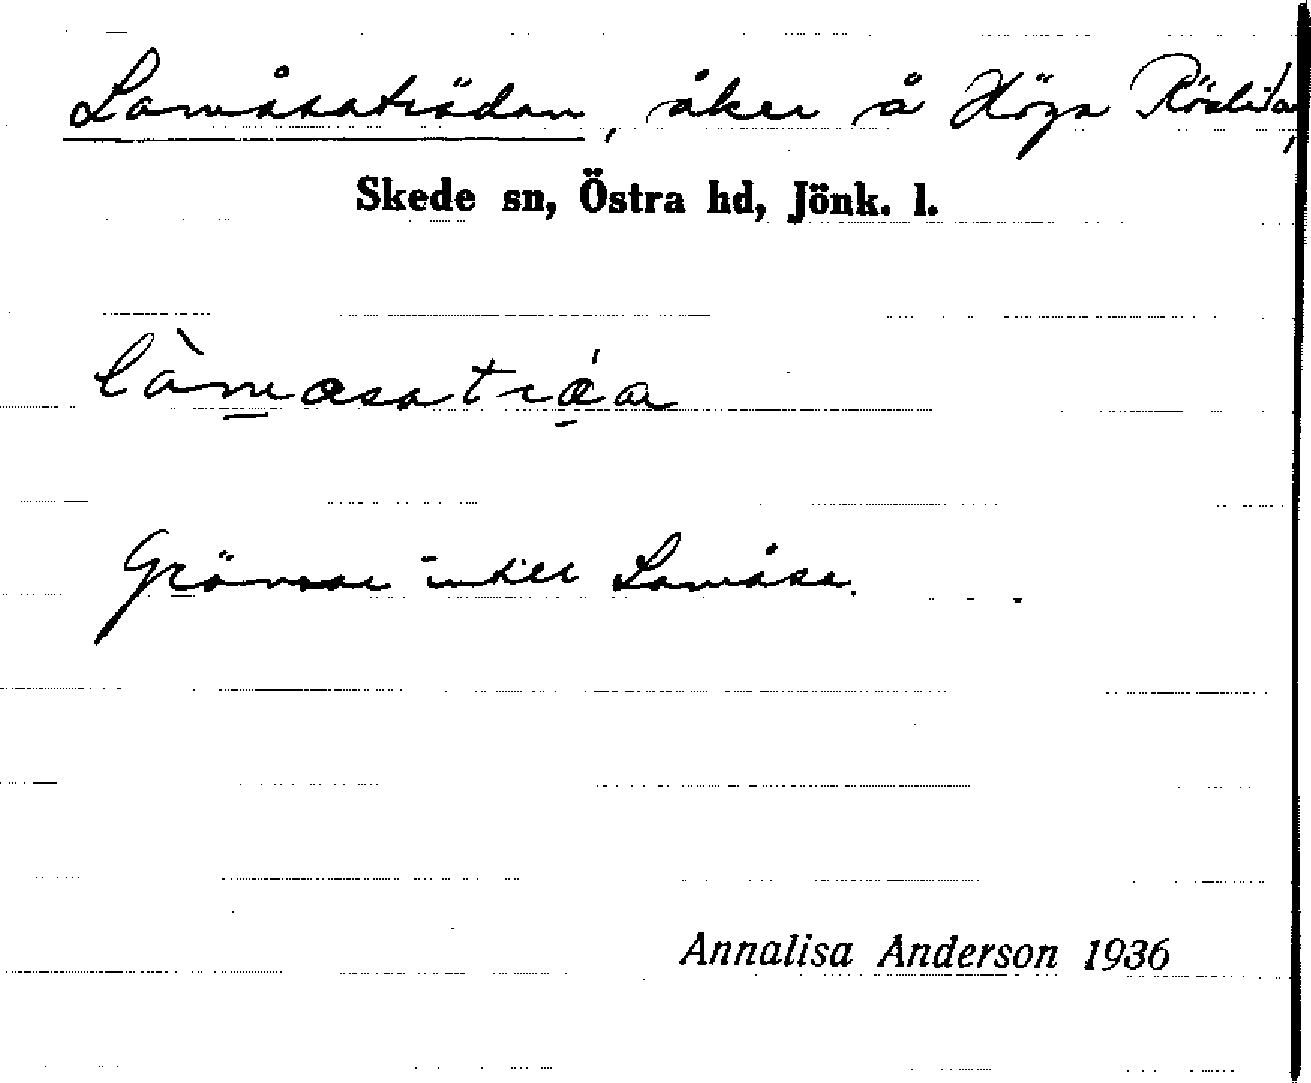 Lamåsaträdan, åker å Höga Röslida,
Skede sn, Östra hd, Jönk. l.
làmasatráa
Gränsar intill Lamåsa.
Annalisa Anderson 1936